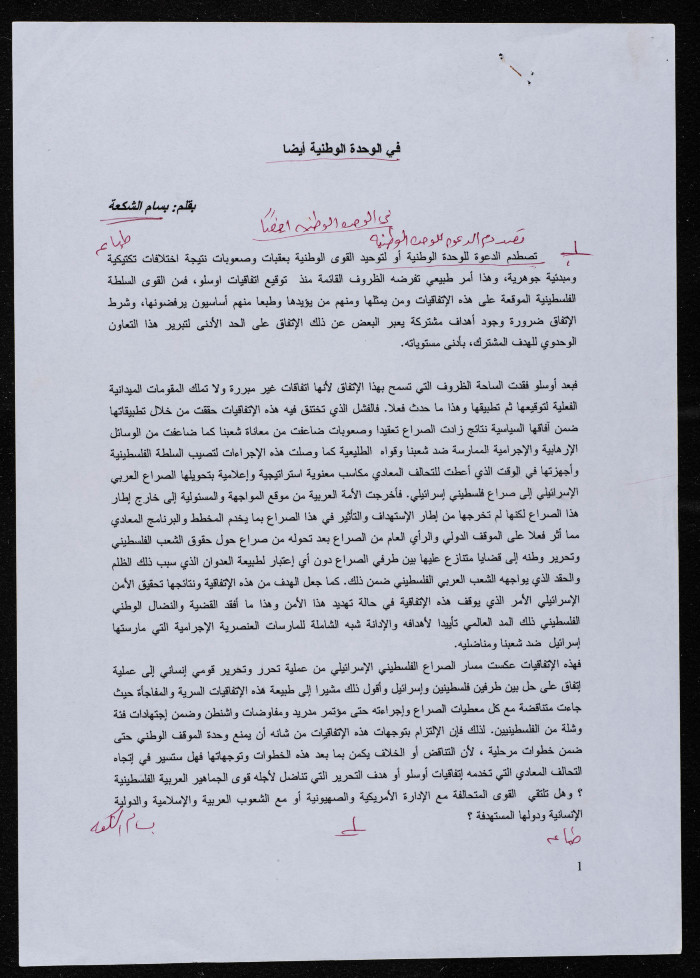 في الوحدة الوطنية أيضا
بقلم: بسام الشكعة
في الوحدة الوطنية ايضاً
طباعه
تصطدم الدعوة للوحدة الوطنية
تصطدم الدعوة للوحدة الوطنية أو لتوحيد القوى الوطنية بعقبات وصعوبات نتيجة اختلافات تكتيكية
ومبدئية جوهرية، وهذا أمر طبيعي تفرضه الظروف القائمة منذ توقيع اتفاقيات اوسلو، فمن القوى السلطة
الفلسطينية الموقعة على هذه الإتفاقيات ومن يمثلها ومنهم من يؤيدها وطبعا منهم أساسيون يرفضونها، وشرط
الإتفاق ضرورة وجود أهداف مشتركة يعبر البعض عن ذلك الإتفاق على الحد الأدنى لتبرير هذا التعاون
الوحدوي للهدف المشترك، بأدنى مستوياته.
فبعد أوسلو فقدت الساحة الظروف التي تسمح بهذا الإتفاق لأنها اتفاقات غير مبررة ولا تملك المقومات الميدانية
الفعلية لتوقيعها ثم تطبيقها وهذا ما حدث فعلا. فالفشل الذي تختنق فيه هذه الإتفاقيات حققت من خلال تطبيقاتها
ضمن أفاقها السياسية نتائج زادت الصراع تعقيدا وصعوبات ضاعفت من معاناة شعبنا كما ضاعفت من الوسائل
الإرهابية والإجرامية الممارسة ضد شعبنا وقواه الطليعية كما وصلت هذه الإجراءات لتصيب السلطة الفلسطينية
وأجهزتها في الوقت الذي أعطت للتحالف المعادي مكاسب معنوية استراتيجية وإعلامية بتحويلها الصراع العربي
الإسرائيلي إلى صراع فلسطيني إسرائيلي. فأخرجت الأمة العربية من موقع المواجهة والمسئولية إلى خارج إطار
هذا الصراع لكنها لم تخرجها من إطار الإستهداف والتأثير في هذا الصراع بما يخدم المخطط والبرنامج المعادي
مما أثر فعلا على الموقف الدولي والرأي العام من الصراع بعد تحوله من صراع حول حقوق الشعب الفلسطيني
وتحرير وطنه إلى قضايا متنازع عليها بين طرفي الصراع دون أي إعتبار لطبيعة العدوان الذي سبب ذلك الظلم
والحقد الذي يواجهه الشعب العربي الفلسطيني ضمن ذلك. كما جعل الهدف من هذه الإتفاقية ونتائجها تحقيق الأمن
الإسرائيلي الأمر الذي يوقف هذه الإتفاقية في حالة تهديد هذا الأمن وهذا ما أفقد القضية والنضال الوطني
الفلسطيني ذلك المد العالمي تأييدا لأهدافه والإدانة شبه الشاملة للمارسات العنصرية الإجرامية التي مارستها
إسرائيل ضد شعبنا ومناضليه.
فهذه الإتفاقيات عكست مسار الصراع الفلسطيني الإسرائيلي من عملية تحرر وتحرير قومي إنساني إلى عملية
إتفاق على حل بين طرفين فلسطينين وإسرائيل وأقول ذلك مشيرا إلى طبيعة هذه الإتفاقيات السرية والمفاجأة حيث
جاءت متناقضة مع كل معطيات الصراع وإجراءته حتى مؤتمر مدريد ومفاوضات واشنطن وضمن إجتهادات فئة
وشلة من الفلسطينيين. لذلك فإن الإلتزام بتوجهات هذه الإتفاقيات من شانه أن يمنع وحدة الموقف الوطني حتى
ضمن خطوات مرحلية ، لأن التناقض أو الخلاف يكمن بما بعد هذه الخطوات وتوجهاتها فهل ستسير في إتجاه
التحالف المعادي التي تخدمه إتفاقيات أوسلو أو هدف التحرير التي تناضل لأجله قوى الجماهير العربية الفلسطينية
؟ وهل تلتقي القوى المتحالفة مع الإدارة الأمريكية والصهيونية أو مع الشعوب العربية والإسلامية والدولية
الإنسانية ودولها المستهدفة ؟
بسام الشكعه
طباعه
1